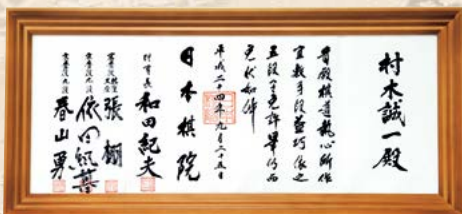 村木誠一殿
貴殿棋道執心所作
宜敷手段益巧依之
五段令免許畢仍而
免状如件
平成二十四年九月二十五日
日本棋院
理事長 和田紀夫
張栩
審査役九段 依田紀基
審査役九段 春山勇